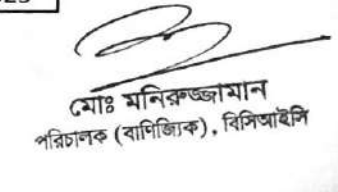 মোঃ মনিরুজ্জামান
পরিচালক (বাণিজ্যিক), বিসিআইসি